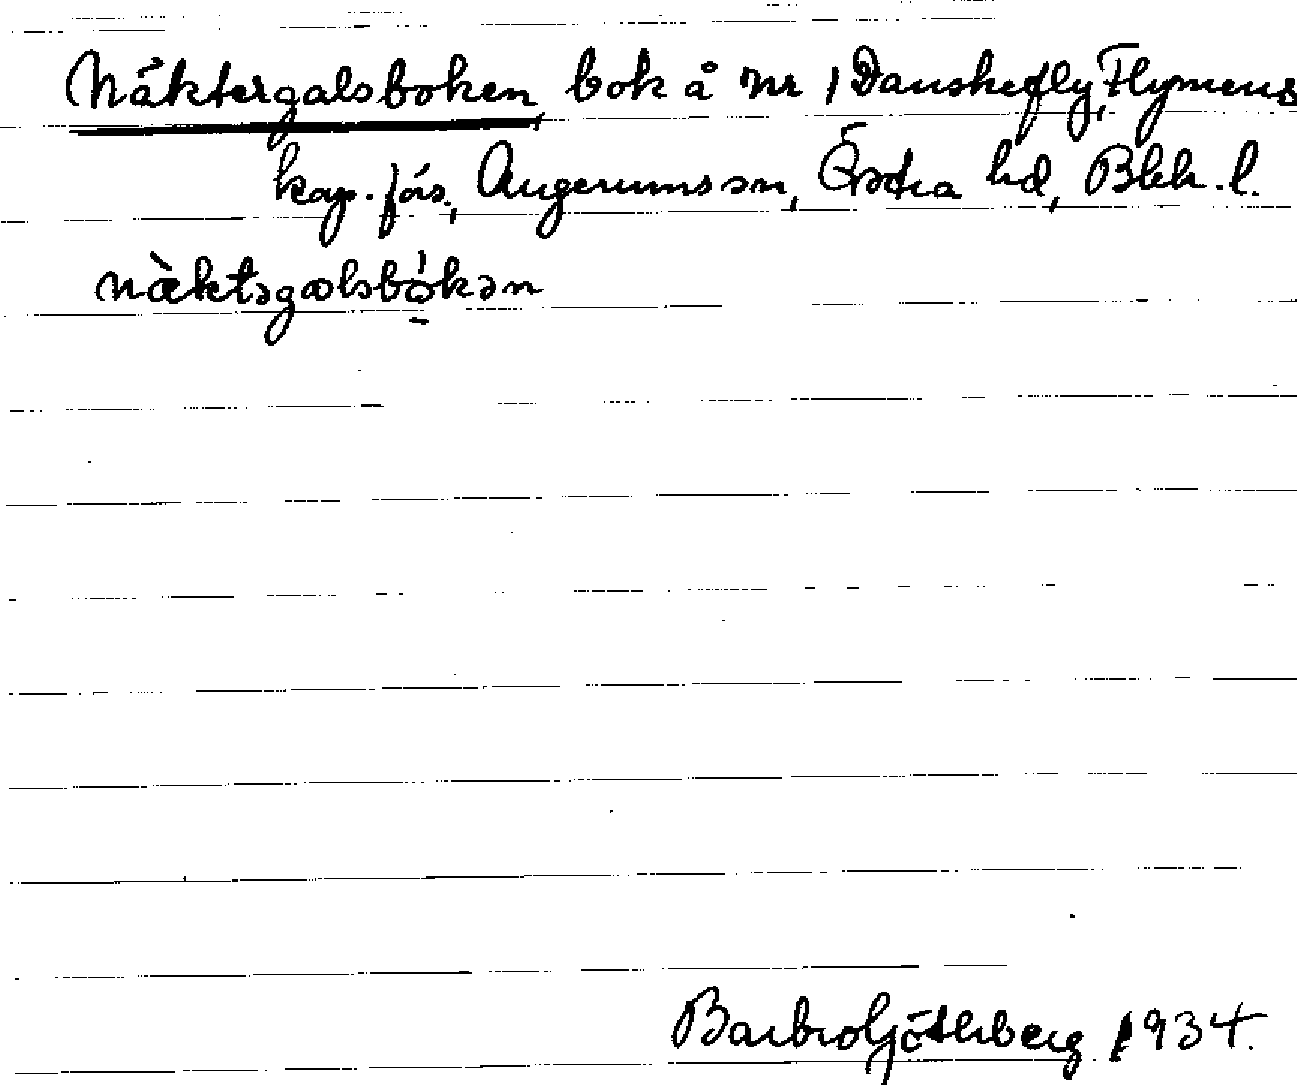 Näktergalsboken, bok å nr 1 Danskefly, Flymens
kap. förs., Augerums sn, Östra hd, Blek. l.
nàktəgalsbókən
Barbro Göthberg 1934.